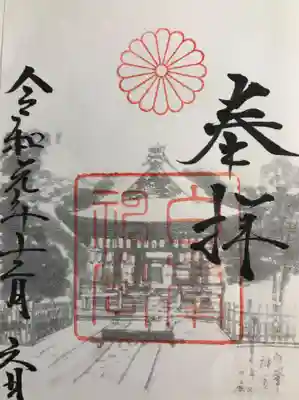 奉拝
白峯神宮
令和元年十二月六日